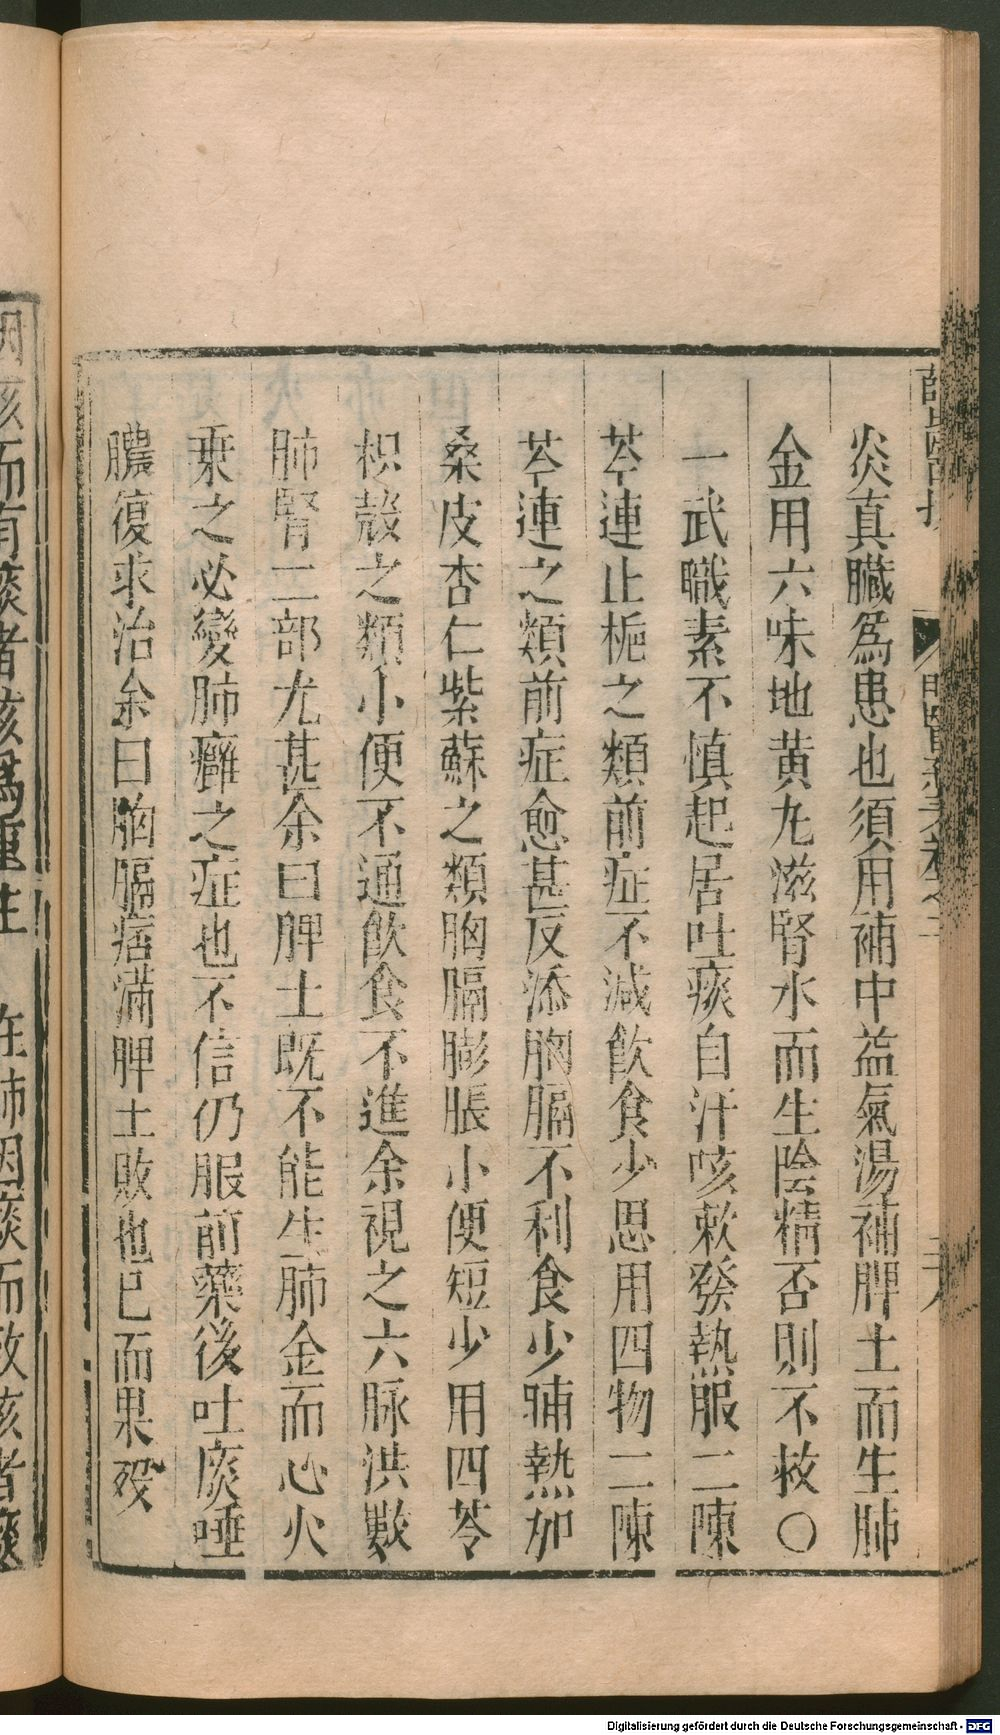 炎真臟爲患也須用補中益氣湯補脾土而生肺
金用六味地黄九滋腎水而生陰精否則不救〇
一武職素不慎起居吐痰自汗咳嗽發熱服二陳
芩連止梔之類前症不減飲食少思用四物二陳
芩連之類前症愈甚反添胸膈不利食少晡熱加
桑皮杏仁紫蘇之類胸膈膨脹小便短少用四苓
枳殼之類小便不通飲食不進余視之六脉洪數
肺腎二部尤甚余曰脾土既不能生肺金而心火
乗之必變肺癰之症也不信仍服前藥後吐痰唾
膿復求治余曰胸膈痞滿脾土敗也已而果殁
因痰而致咳者痰
Digitalisierung gefördert durch die Deutsche Forschungsgemeinschaft - DFG